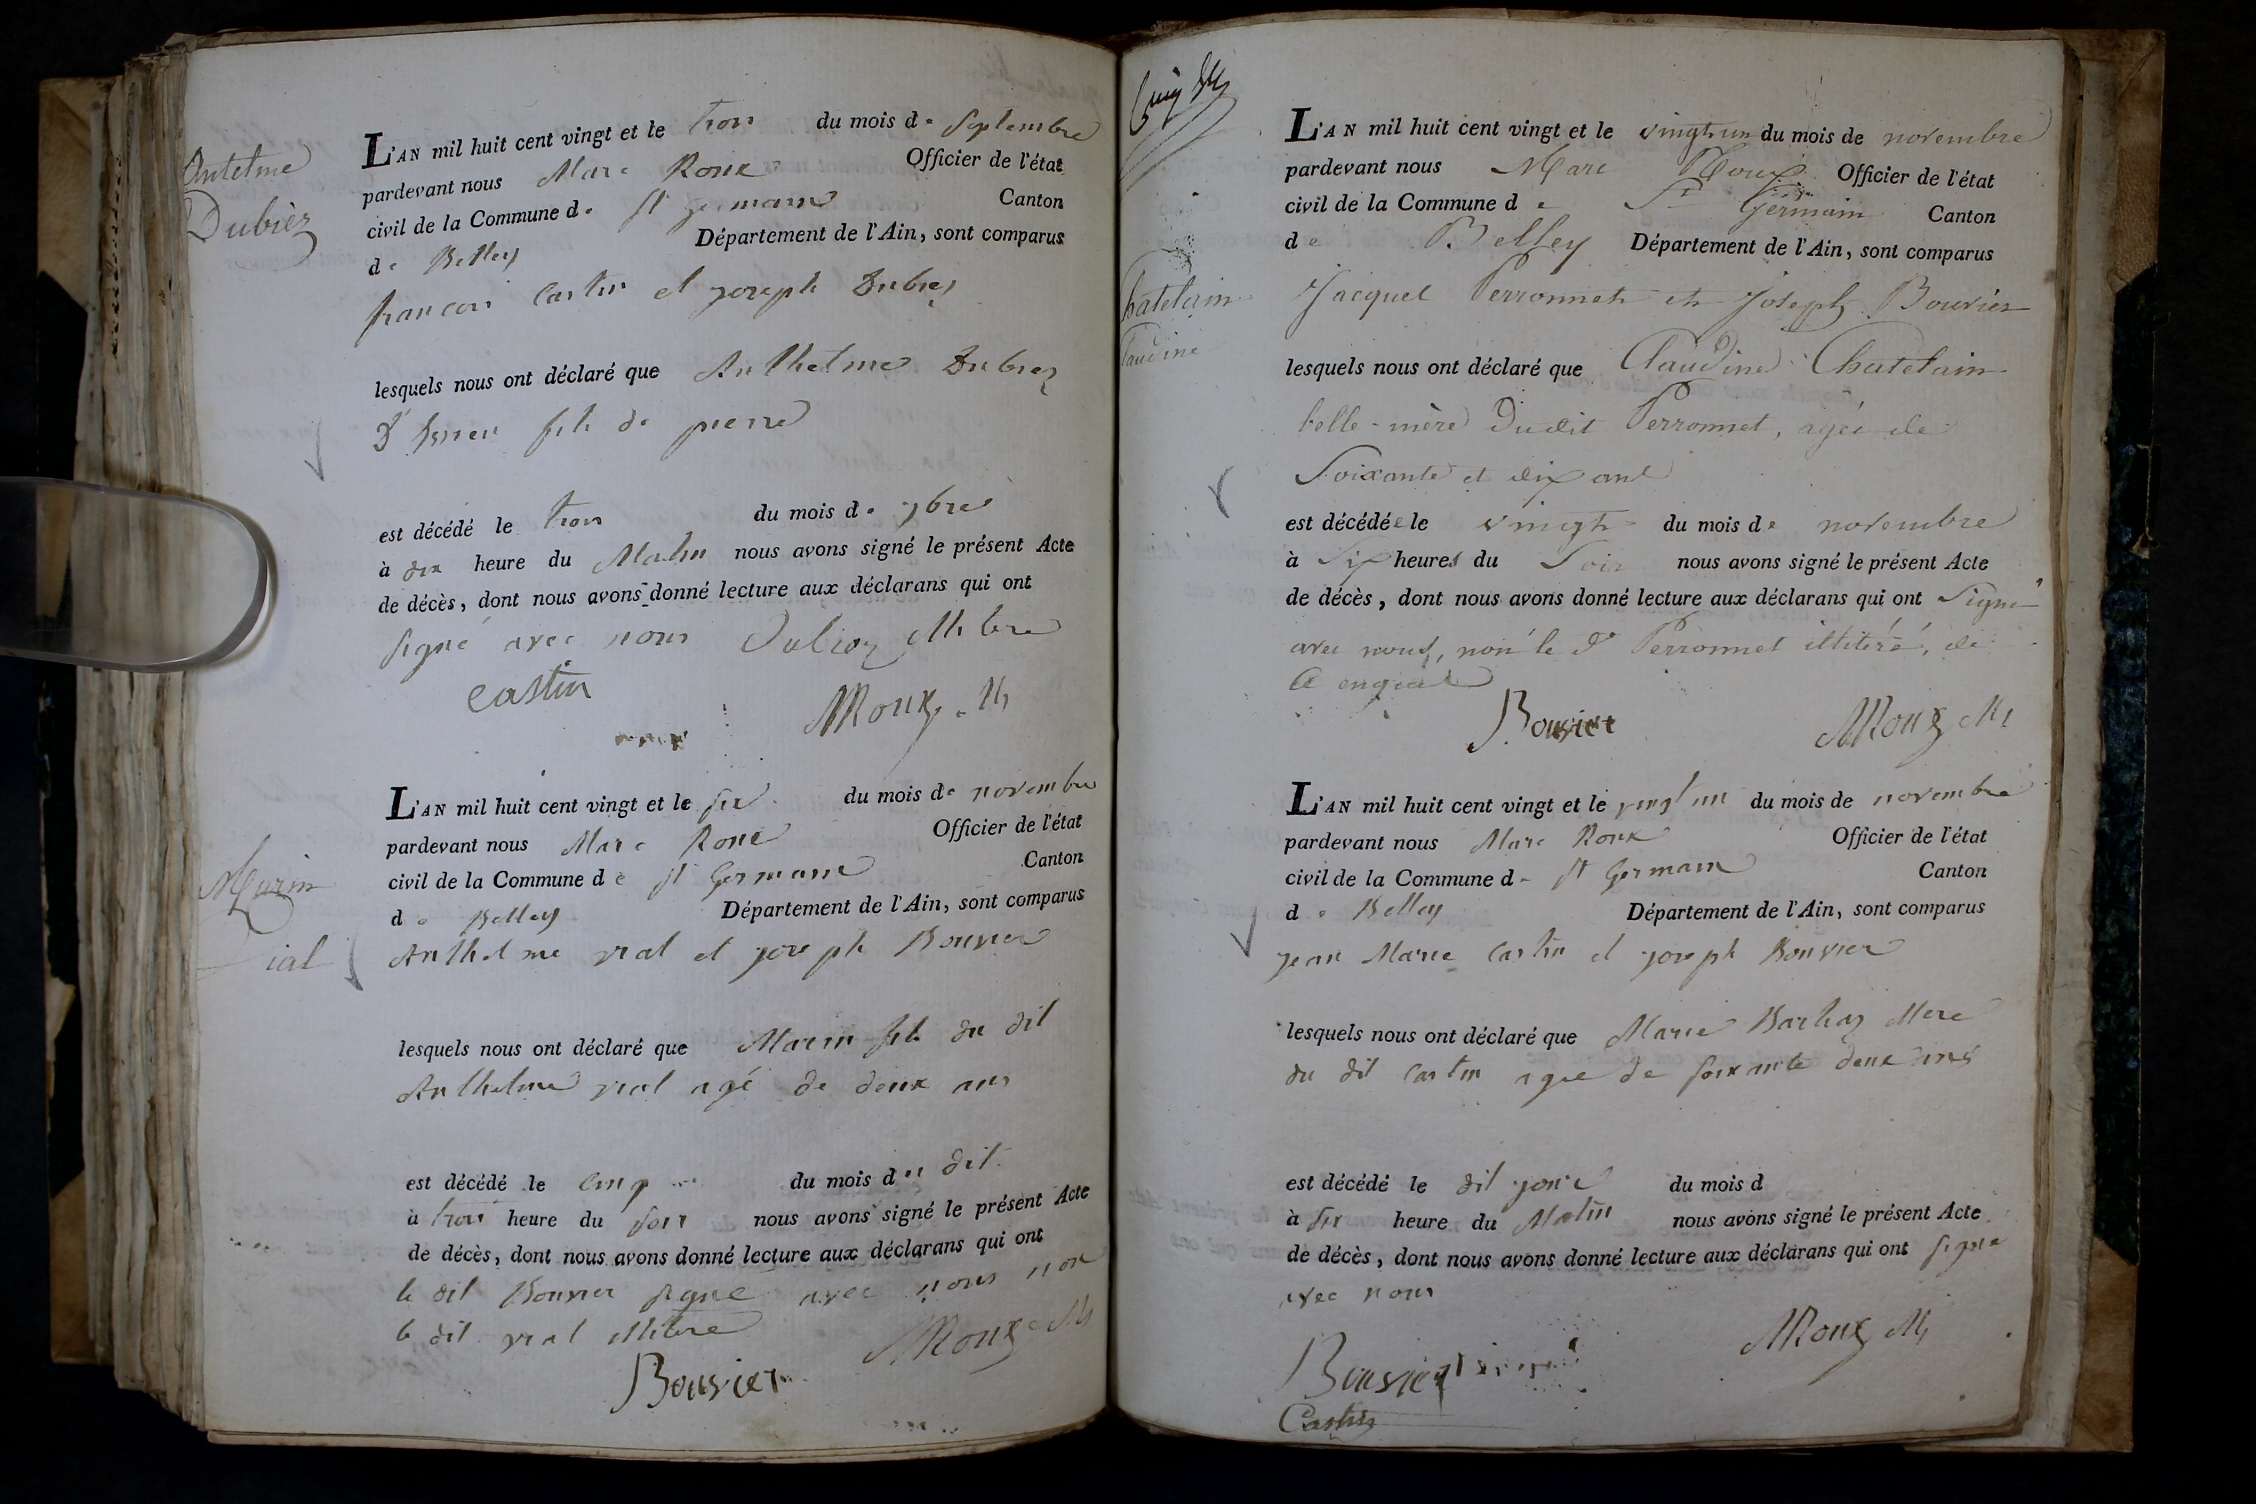 Antelme
Dubiez
L'AN mil huit cent vingt et le trois du mois de Septembre
pardevant nous Marc Roux Officier de l'état
civil de la Commune de St germain Canton
de Belley Département de l'Ain, sont comparus
francois Castin et joseph Dubiez
lesquels nous ont déclaré que Anthelme Dubiez
fils de pierre
est décédé le trois du mois de 7bre
à dix heure du Matin nous avons signé le présent Acte
de décès, dont nous avons donné lecture aux déclarans qui ont
signé avec nous Dubiez
Castin MRoux
L'AN mil huit cent vingt et le six du mois de novembre
pardevant nous Marc Roux Officier de l'état
civil de la Commune de St Germain Canton
de Belley Département de l'Ain, sont comparus
Marin
Vial
Anthelme vial et joseph Bouvier
lesquels nous ont déclaré que Marin fils du dit
Anthelme vial agé de deux ans
est décédé le cinq du mois du dit
à trois heure du soir nous avons signé le présent Acte
de décès, dont nous avons donné lecture aux déclarans qui ont
le dit Bouvier signé avec nous non
le dit vial illitéré MRoux
Bouvier
L'AN mil huit cent vingt et le vingt un du mois de novembre
pardevant nous Marc Roux Officier de l'état
civil de la Commune de St Germain Canton
de Belley Département de l'Ain, sont comparus
Chatelain
Claudine
Jacques Perronnet et Joseph Bouvier
lesquels nous ont déclaré que Claudine Chatelain
belle-mère dudit Perronnet, agée de
Soixante et dix ans
est décédée le vingt du mois de novembre
à Six heures du Soir nous avons signé le présent Acte
de décès, dont nous avons donné lecture aux déclarans qui ont Signé
avec nous, non le dt Perronnet illitéré, de
ce enquis
Bouvier MRoux
L'AN mil huit cent vingt et le vingt un du mois de novembre
pardevant nous Marc Roux Officier de l'état
civil de la Commune de St Germain Canton
de Belley Département de l'Ain, sont comparus
jean Marie Castin et joseph Bouvier
lesquels nous ont déclaré que Marie Mere
du dit Castin agee de soixante deux ans
est décédé le dit jour du mois d
à six heure du Matin nous avons signé le présent Acte
de décès, dont nous avons donné lecture aux déclarans qui ont signé
avec nous
Bouvier MRoux
Castin